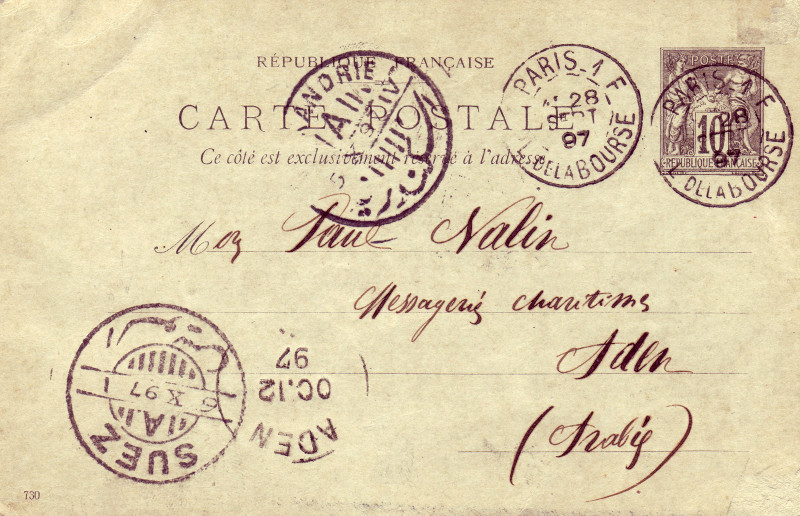 RÉPUBLIQUE FRANÇAISE
CARTE POSTALE
Ce côté est exclusivement réservé à l'adresse
POSTES
10
REPUBLIQUE FRANÇAISE
PARIS-1
28
SEPT
97
PL. DE LA BOURSE
PARIS-1
28
97
PL. DE LA BOURSE
ANDRIE
Mon Paul Nalin
Messageries Maritimes
Aden
(Arabie)
SUEZ
X 97
ADEN
OC.12
97
730